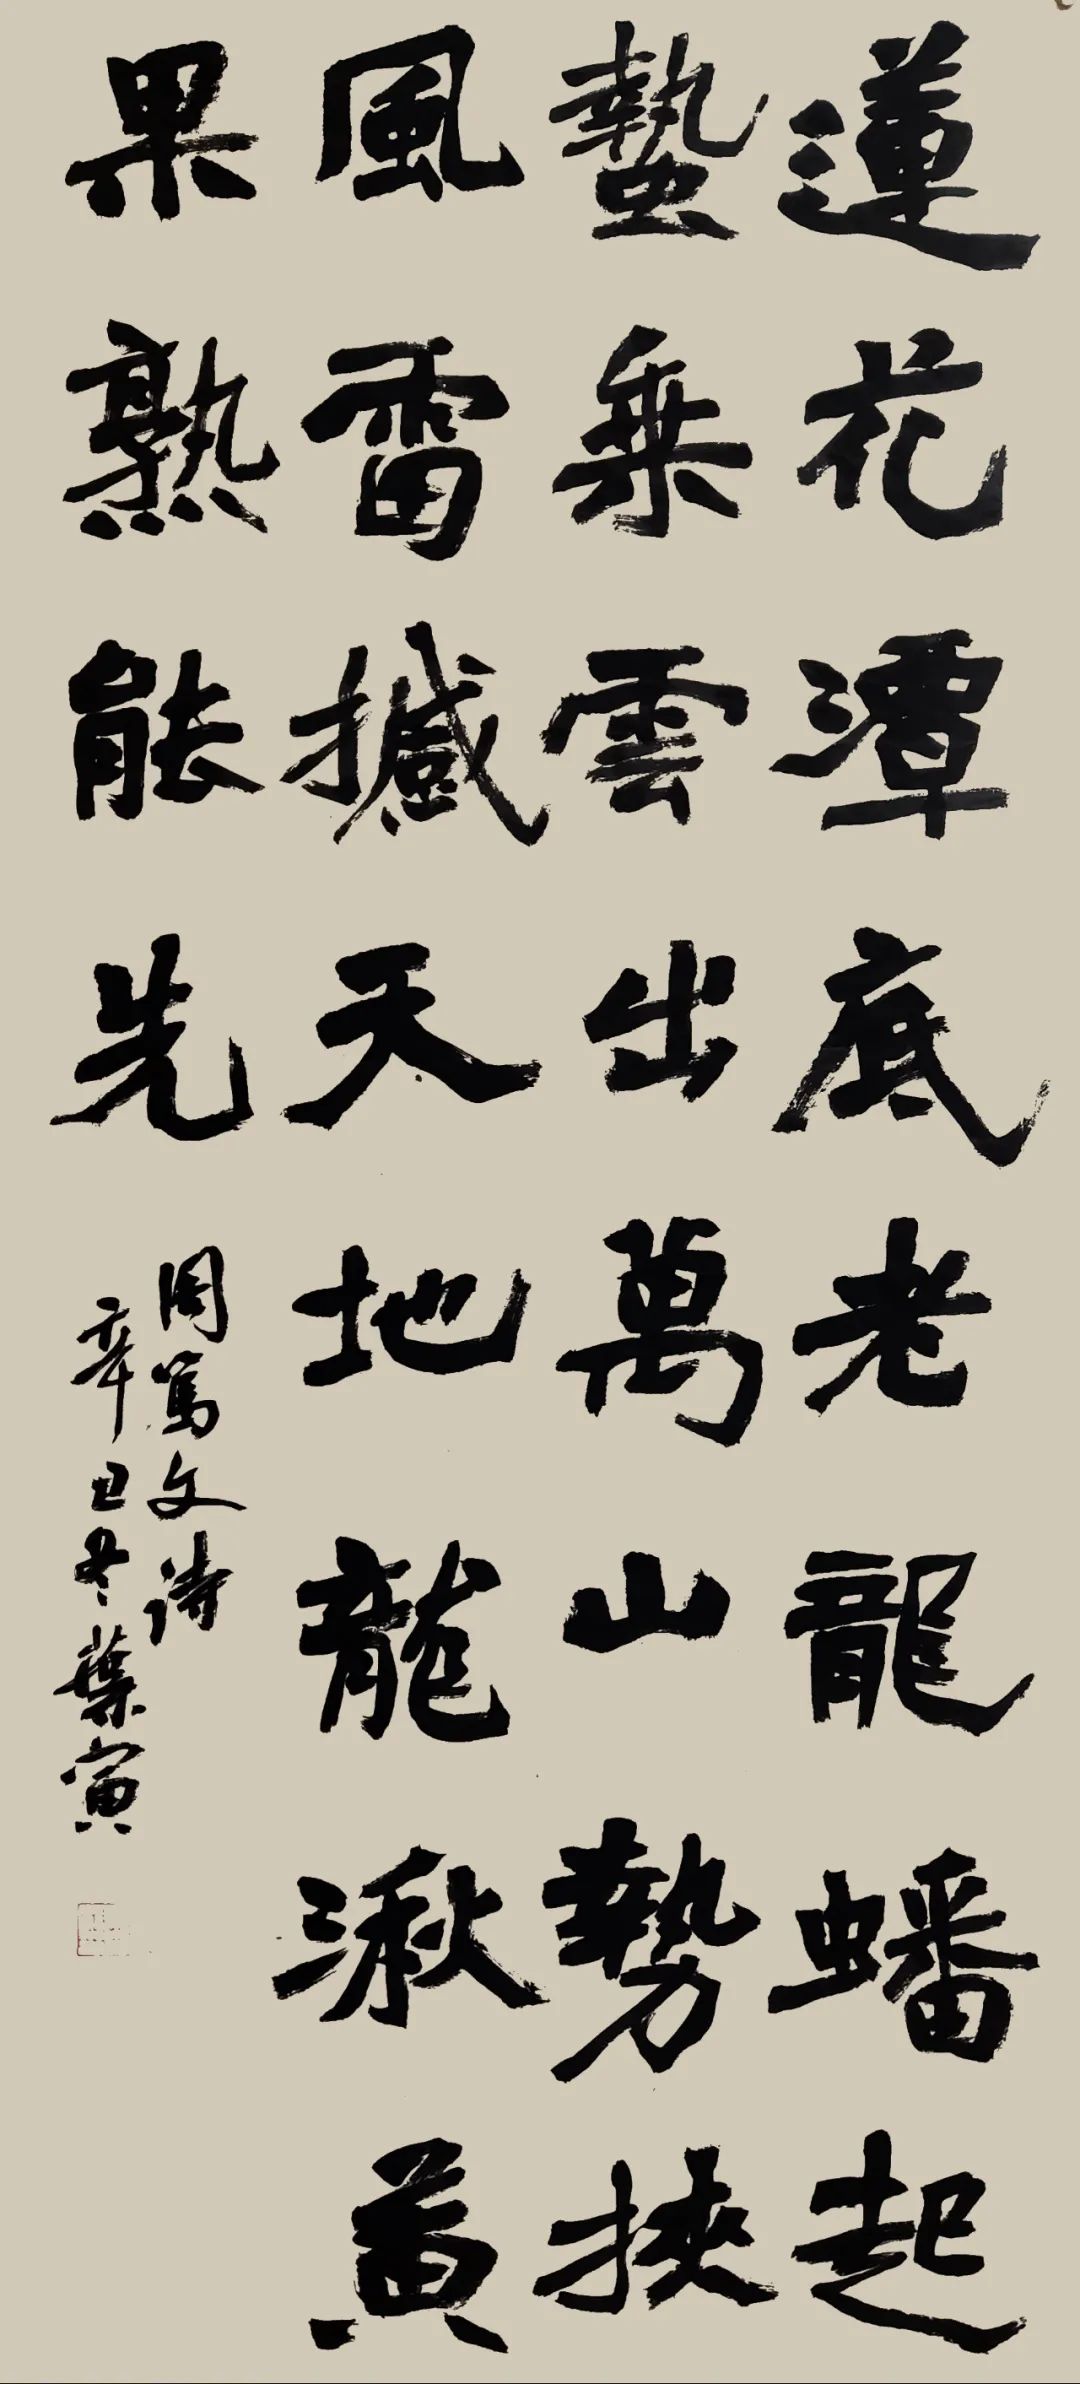 蓮花潭底老龍蟠起
蟄乗雲出萬山勢挾
風雷撼天地龍湫黄
果熟能先
周篤文詩
辛丑冬葉寅